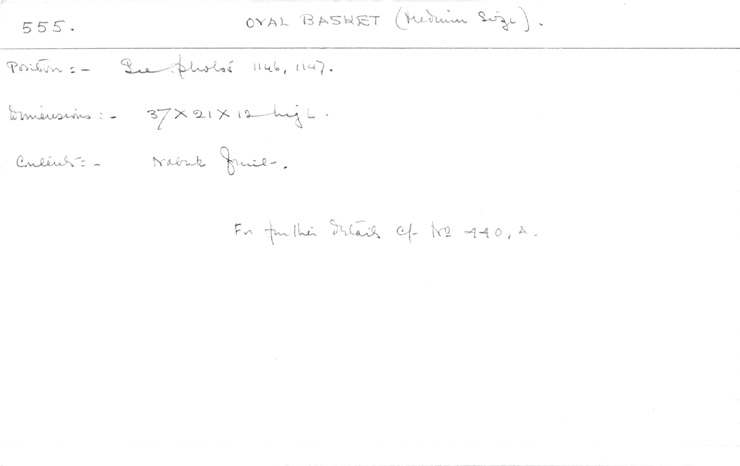 555. OVAL BASKET (Medium Size).
Position:- See photos 1146, 1147.
Dimensions:- 37 x 21 x 12 high.
Contents:- Nabak fruit.
For further details cf. No 440, A.